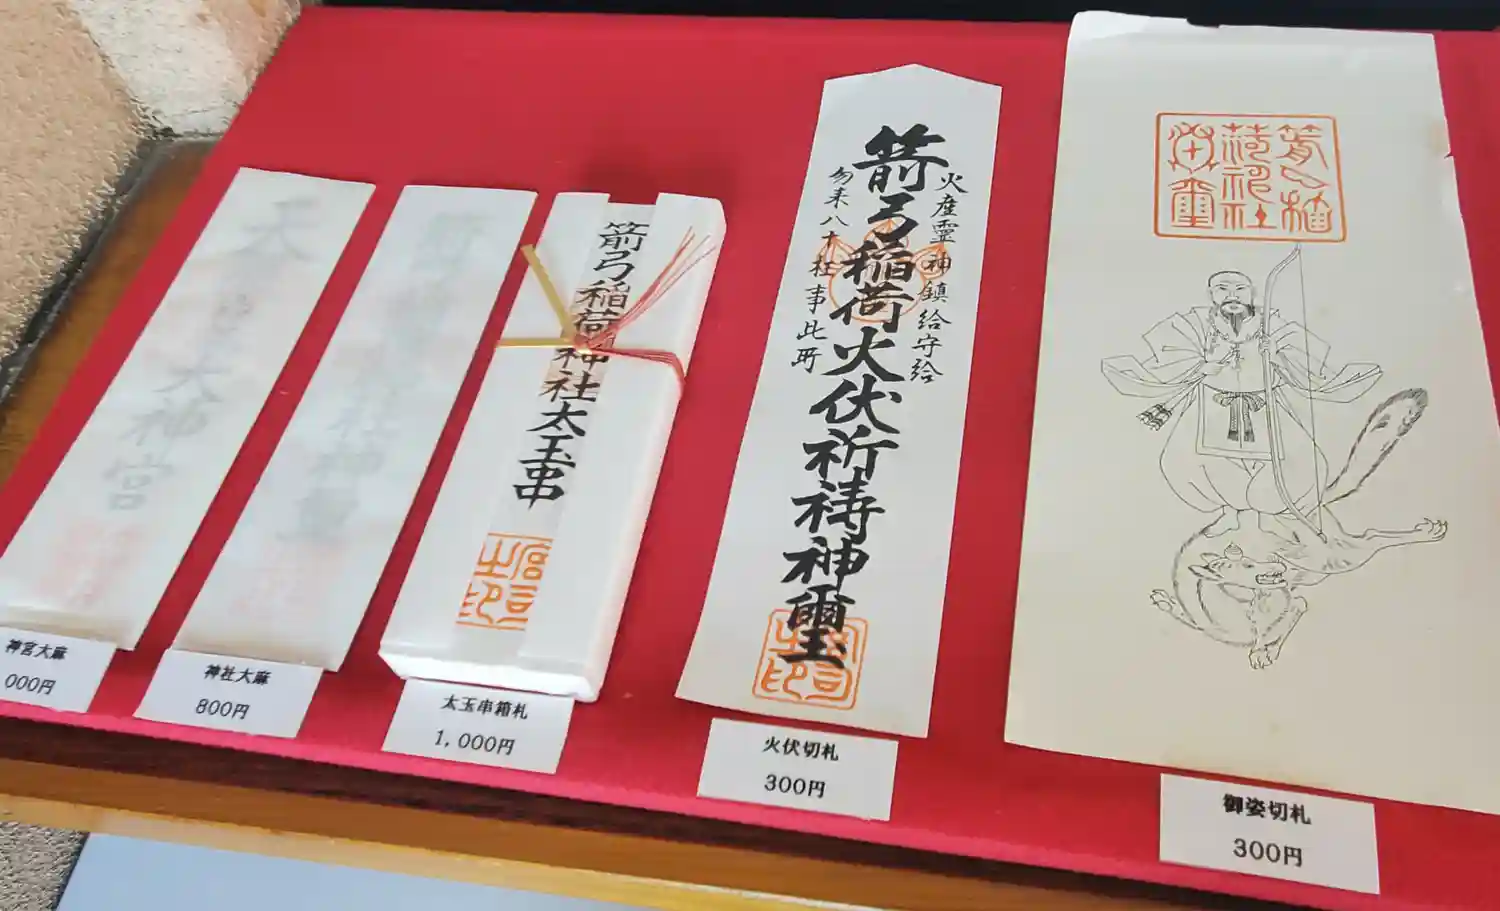 天照皇大神宮
神宮大麻
000円
神社大麻
800円
箭弓稲荷神社太玉串
宮司之印
太玉串箱札
1,000円
火産霊神鎮給守給
箭弓稲荷火伏祈祷神璽
勿来八十枉事此所
宮司之印
火伏切札
300円
箭弓稲荷神社
御姿切札
300円